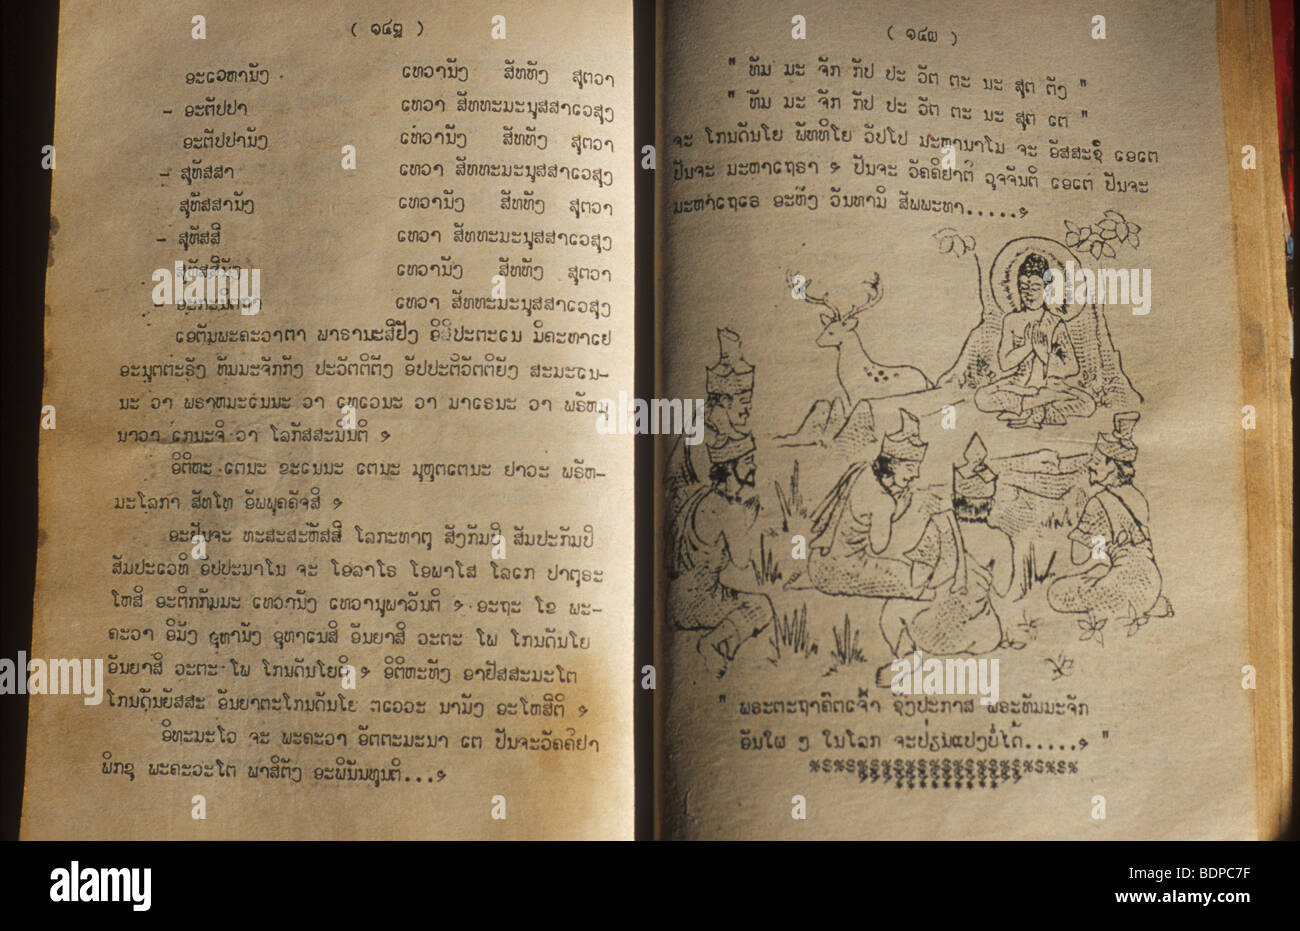 ( ໑໔໘ )
ອະເວຫານັງ ເທວານັງ ສັທທັງ ສຸຕວາ
– ອະຕັປປາ ເທວາ ສັທທະມະນຸສສາເວສຸງ
ອະຕັປປານັງ ເທວານັງ ສັທທັງ ສຸຕວາ
– ສຸທັສສາ ເທວາ ສັທທະມະນຸສສາເວສຸງ
ສຸທັສສານັງ ເທວານັງ ສັທທັງ ສຸຕວາ
– ສຸທັສສີ ເທວາ ສັທທະມະນຸສສາເວສຸງ
ສຸທັສສີນັງ ເທວານັງ ສັທທັງ ສຸຕວາ
– ອະກະນິຕຖາ ເທວາ ສັທທະມະນຸສສາເວສຸງ
ເອຕັມພະຄະວາຕາ ພາຣານະສິຍັງ ອິສິປະຕະເນ ມິຄະທາເຢ
ອະນຸຕຕະຣັງ ທັມມະຈັກກັງ ປະວັຕຕິຕັງ ອັປປະຕິວັຕຕິຍັງ ສະມະເນ–
ນະ ວາ ພຣາຫມະເນນະ ວາ ເທເວນະ ວາ ມາເຣນະ ວາ ພຣັຫມຸ
ນາວາ ເກນະຈິ ວາ ໂລກັສສະມິນຕິ ໆ
ອິຕິຫະ ເຕນະ ຂະເນນະ ເຕນະ ມຸຫຸຕເຕນະ ຢາວະ ພຣັຫ–
ມະໂລກາ ສັທໂທ ອັພພຸຄຄັຈສິ ໆ
ອະຢັນຈະ ທະສະສະຫັສສີ ໂລກະທາຕຸ ສັງກັມປິ ສັມປະກັມປິ
ສັມປະເວທິ ອັປປະມາໂນ ຈະ ໂອລາໂຣ ໂອພາໂສ ໂລເກ ປາຕຸຣະ
ໂຫສິ ອະຕິກກັມມະ ເທວານັງ ເທວານຸພາວັນຕິ ໆ ອະຖະ ໂຂ ພະ–
ຄະວາ ອິມັງ ອຸທານັງ ອຸທາເນສິ ອັນຍາສິ ວະຕະ ໂພ ໂກນດັນໂຍ
ອັນຍາສິ ວະຕະ ໂພ ໂກນດັນໂຍຕິ ໆ ອິຕິຫະທັງ ອາຢັສສະມະໂຕ
ໂກນດັນຍັສສະ ອັນຍາຕະໂກນດັນໂຍ ຕເວວະ ນາມັງ ອະໂຫສີຕິ ໆ
ອິທະມະໂວ ຈະ ພະຄະວາ ອັຕຕະມະນາ ເຕ ປັນຈະວັຄຄິຢາ
ພິກຂຸ ພະຄະວະໂຕ ພາສິຕັງ ອະພິນັນທຸນຕິ...ໆ
( ໑໔໙ )
" ທັມ ມະ ຈັກ ກັປ ປະ ວັຕ ຕະ ນະ ສຸຕ ຕັງ "
" ທັມ ມະ ຈັກ ກັປ ປະ ວັຕ ຕະ ນະ ສຸຕ ເຕ "
ຈະ ໂກນດັນໂຍ ພັທທິໂຍ ວັປໂປ ມະຫານາໂມ ຈະ ອັສສະຊິ ເອເຕ
ປັນຈະ ມະຫາເຖຣາ ໆ ປັນຈະ ວັຄຄິຢາຕິ ວຸຈຈັນຕິ ເອເຕ ປັນຈະ
ມະຫາເຖເຣ ອະຫັງ ວັນທາມິ ສັພພະທາ.....ໆ
" ພຣະຕະຖາຄົຕເຈົ້າ ຊົງປະກາສ ພຣະທັມມະຈັກ
ອັນໃຜ ໆ ໃນໂລກ ຈະປ່ຽນແປງບໍ່ໄດ້.....ໆ "
alamy
BDPC7F
www.alamy.com